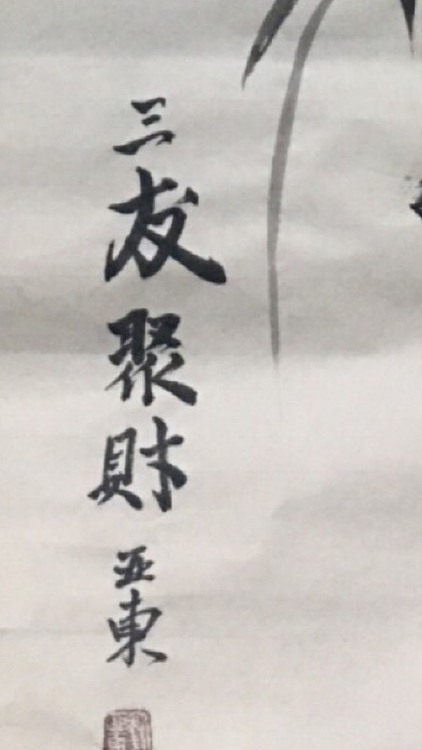 三友聚財
亚東